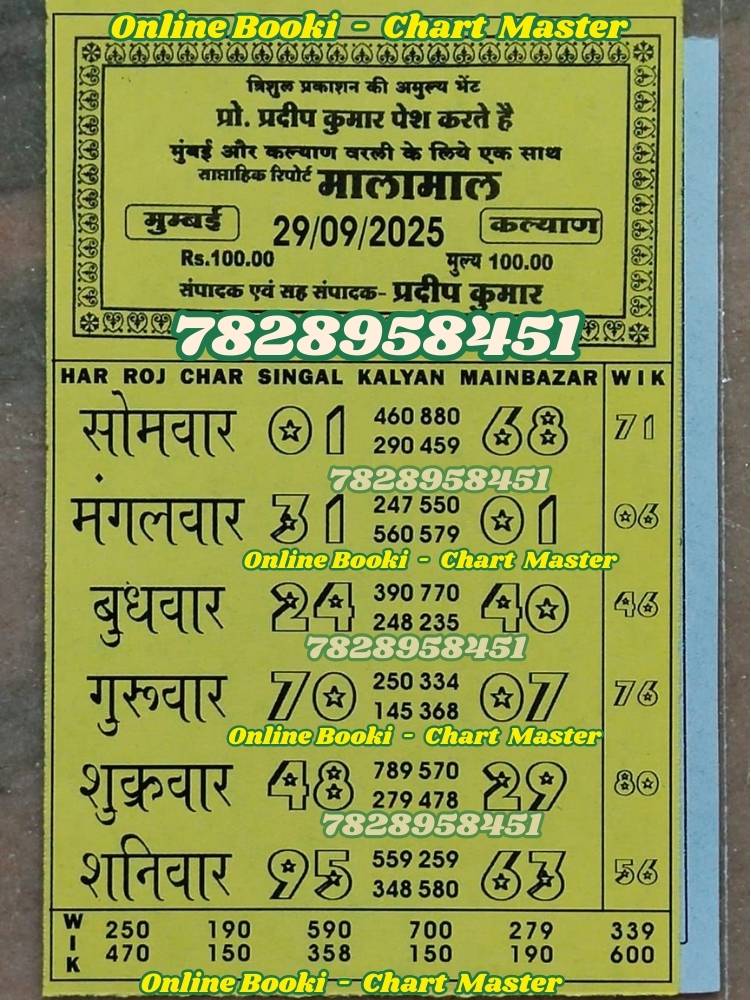 Online Booki - Chart Master
त्रिशुल प्रकाशन की अमुल्य भेंट
प्रो. प्रदीप कुमार पेश करते है
मुंबई और कल्याण वरली के लिये एक साथ
साप्ताहिक रिपोर्ट मालामाल
मुम्बई 29/09/2025 कल्याण
Rs.100.00 मुल्य 100.00
संपादक एवं सह संपादक- प्रदीप कुमार
7828958451
HAR ROJ CHAR SINGAL KALYAN MAINBAZAR WIK
सोमवार 01 460 880 68 71
290 459
7828958451
मंगलवार 31 247 550 01 06
560 579
Online Booki - Chart Master
बुधवार 24 390 770 40 46
248 235
7828958451
गुरूवार 70 250 334 07 76
145 368
Online Booki - Chart Master
शुक्रवार 48 789 570 29 80
279 478
7828958451
शनिवार 95 559 259 63 56
348 580
WIK 250 190 590 700 279 339
470 150 358 150 190 600
Online Booki - Chart Master